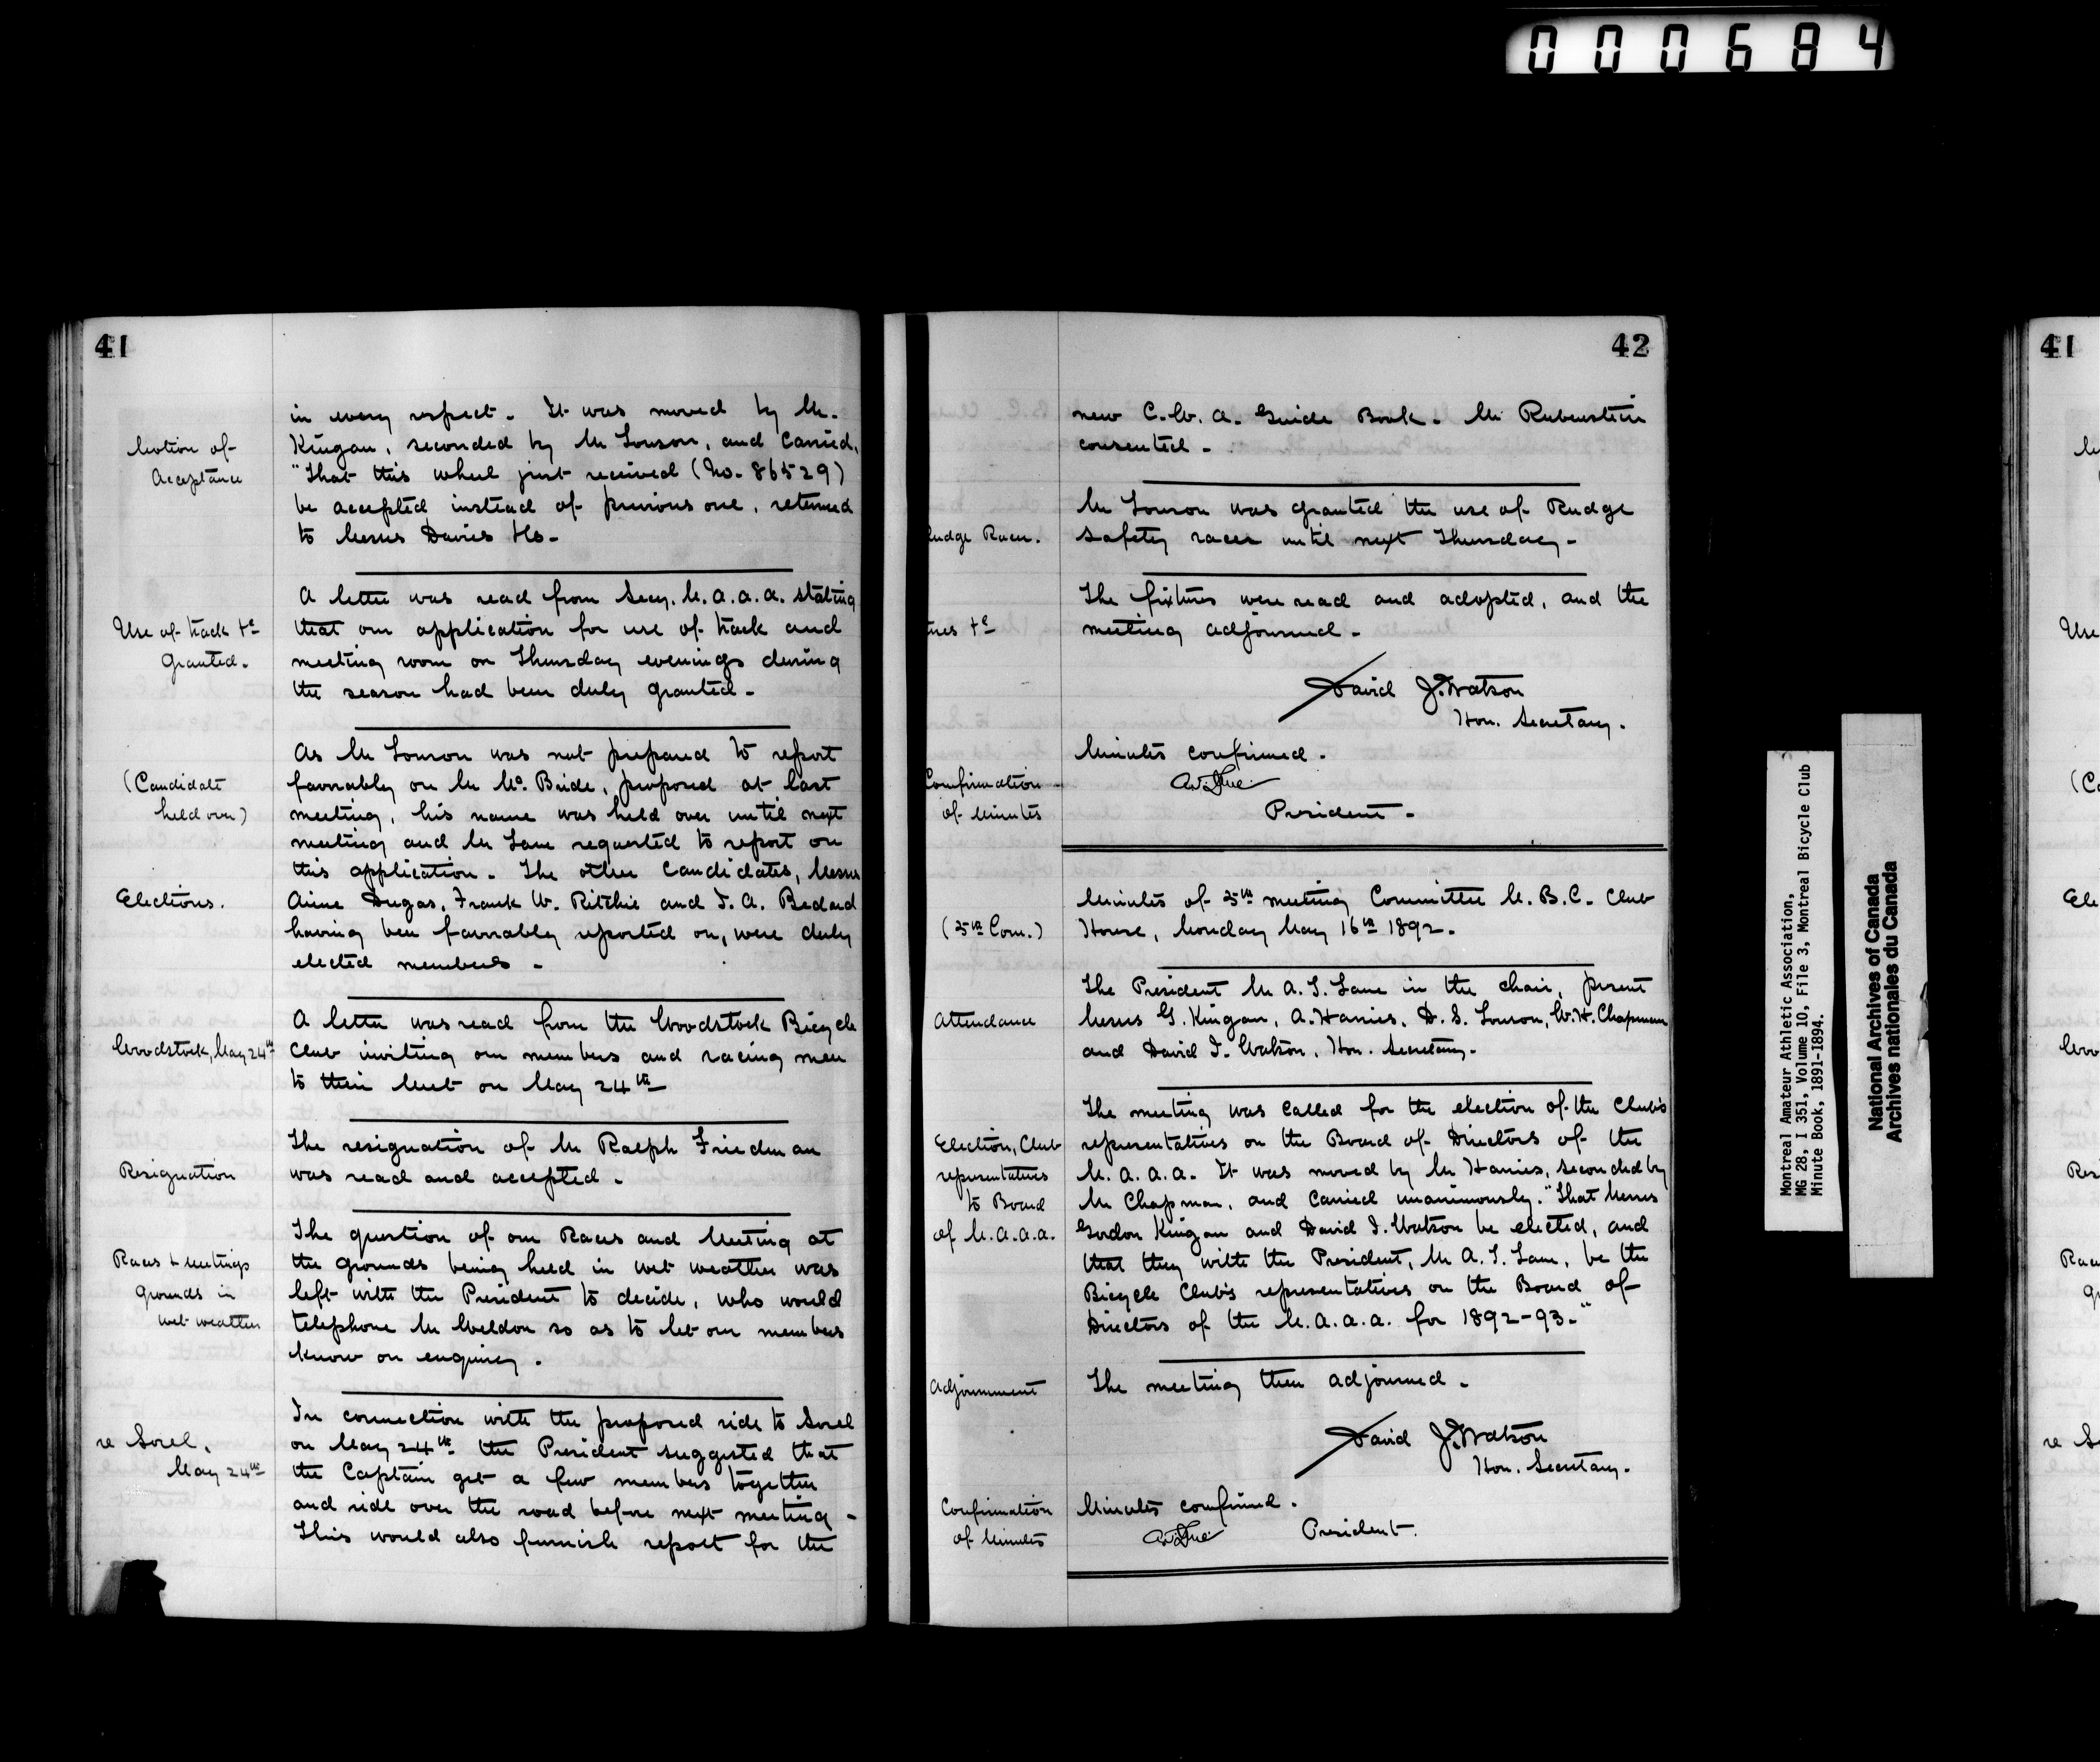 000684
41
in every respect. It was moved by Mr.
Motion of
Kingan, seconded by Mr Louson, and Carried,
Acceptance
"That this wheel just received (No. 86529)
be accepted instead of previous one, returned
to Messrs Davies &Co.
A letter was read from Secy. M.A.A.A. stating
Use of track &c
that our application for use of track and
Granted.
meeting room on Thursday evenings during
the season had been duly granted.
As Mr Louson was not prepared to report
(Candidate
favorably on Mr McBride, proposed at last
held over)
meeting, his name was held over until next
meeting and Mr Lane requested to report on
this application. The other Candidates, Messrs
Elections.
Aime Dugas, Frank W. Ritchie and J. A. Bedard
having been favorably reported on, were duly
elected members.
A letter was read from the Woodstock Bicycle
Woodstock, May 24th
Club inviting our members and racing men
to their Meet on May 24th
The resignation of Mr Ralph Friedman
Resignation
was read and accepted.
The question of our Races and Meeting at
Races & Meetings
the grounds being held in wet weather was
Grounds in
left with the President to decide, who would
wet weather
telephone Mr Weldon so as to let our members
know on enquiry.
In connection with the proposed ride to Sorel
re Sorel,
on May 24th the President suggested that
May 24th
the Captain get a few members together
and ride over the road before next meeting.
This would also furnish report for the
42
new C.W.A. Guide Book. Mr Rubenstein
consented.
Mr Louson was granted the use of Rudge
udge Racer.
Safety racer until next Thursday.
The fixtures were read and adopted, and the
tures &c
meeting adjourned.
David J. Watson
Hon. Secretary.
Minutes confirmed.
Confirmation
of Minutes
President.
Minutes of 5th meeting Committee M.B.C. Club
(5th Com.)
House, Monday May 16th 1892.
The President Mr A.T. Lane in the chair, present
Attendance
Messrs G. Kingan, A. Harries, D. S. Louson, W.H. Chapman
and David J. Watson, Hon. Secretary.
The meeting was called for the election of the Club's
Election, Club
representatives on the Board of Directors of the
representatives
M.A.A.A. It was moved by Mr Harries, seconded by
to Board
Mr Chapman, and Carried unanimously. "That Messrs
of M.A.A.A.
Gordon Kingan and David J. Watson be elected, and
that they with the President, Mr A.T. Lane, be the
Bicycle Club's representatives on the Board of
Directors of the M.A.A.A. for 1892-93."
Adjournment
The meeting then adjourned.
David J. Watson
Hon. Secretary.
Confirmation
Minutes confirmed.
of Minutes
President.
Montreal Amateur Athletic Association,
MG 28, I 351, Volume 10, File 3, Montreal Bicycle Club
Minute Book, 1891-1894.
National Archives of Canada
Archives nationales du Canada
41
Use
(Ca
Ele
Woo
Res
re So